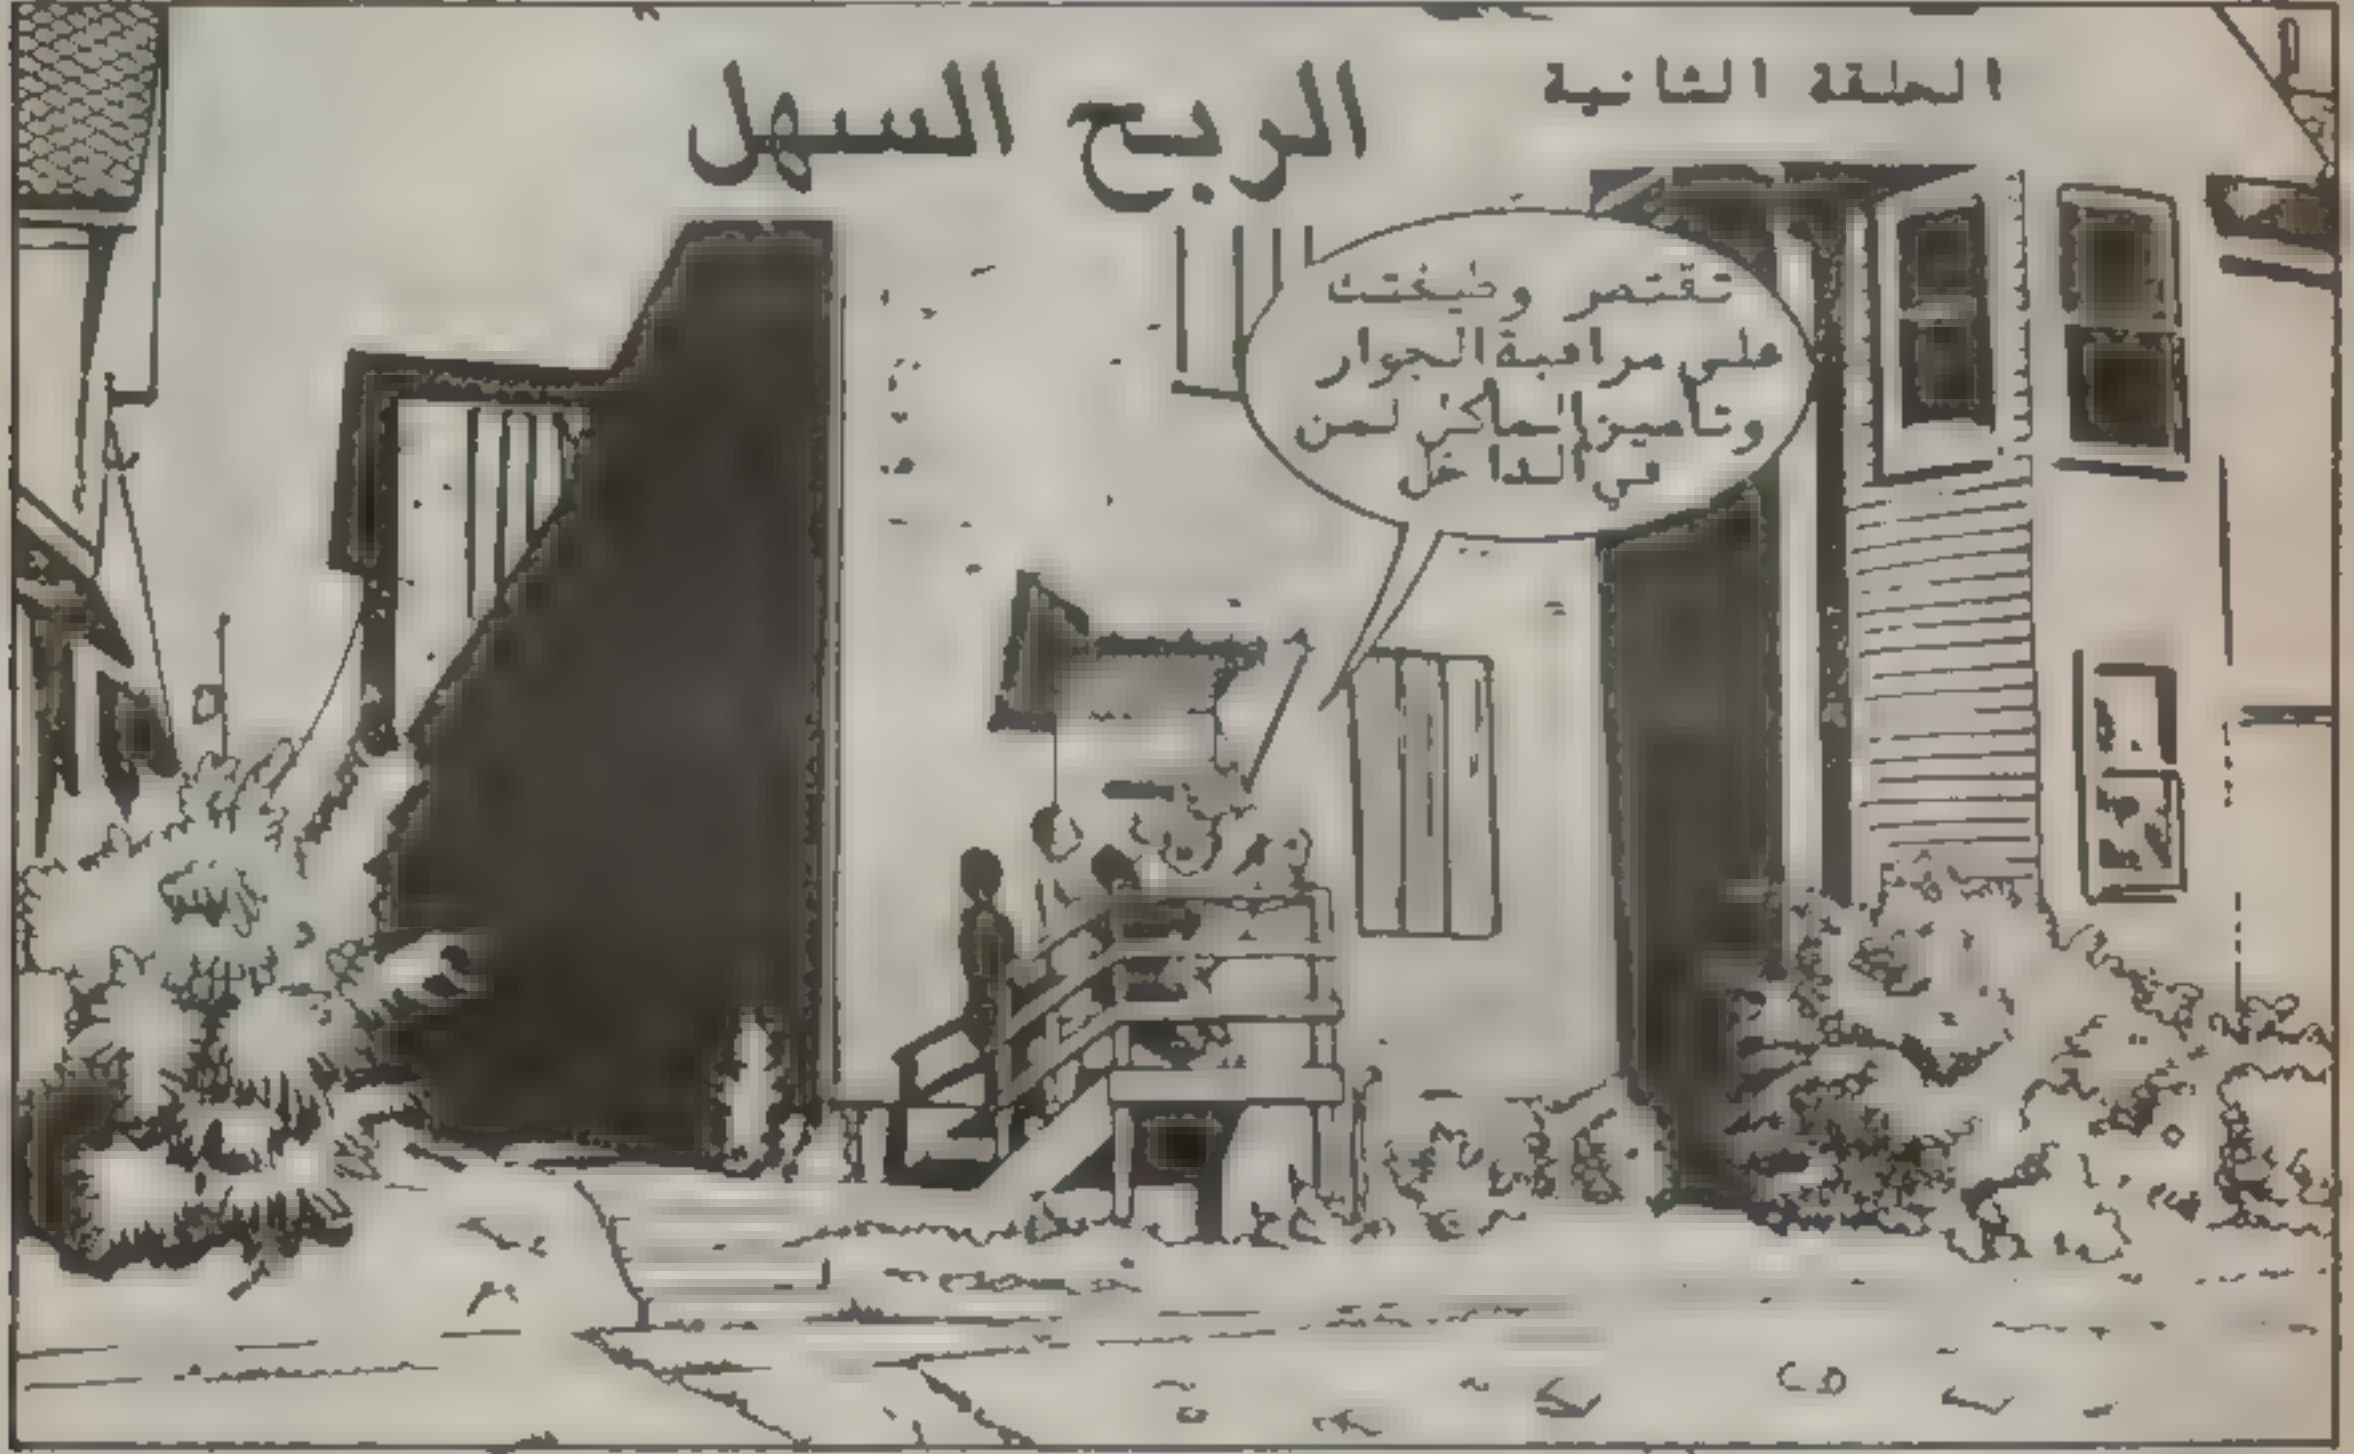 الحلقة الثانية
الربح السهل
تقتصر وظيفتك
على مراقبة الجوار
وتأمين الماكن لمن
في الداخل